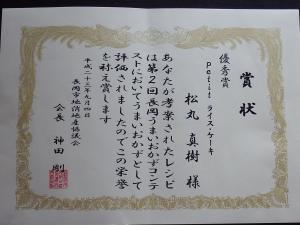 賞状
優秀賞
petit ライス・ケーキ
松丸 真樹 様
あなたが考案されたレシピ
は第2回長岡うまいおかずコンテ
ストにおいてうまいおかずとして
評価されましたのでこの栄誉
を称え賞します
平成二十三年九月四日
長岡市地消地産協議会
会長 神田 剛